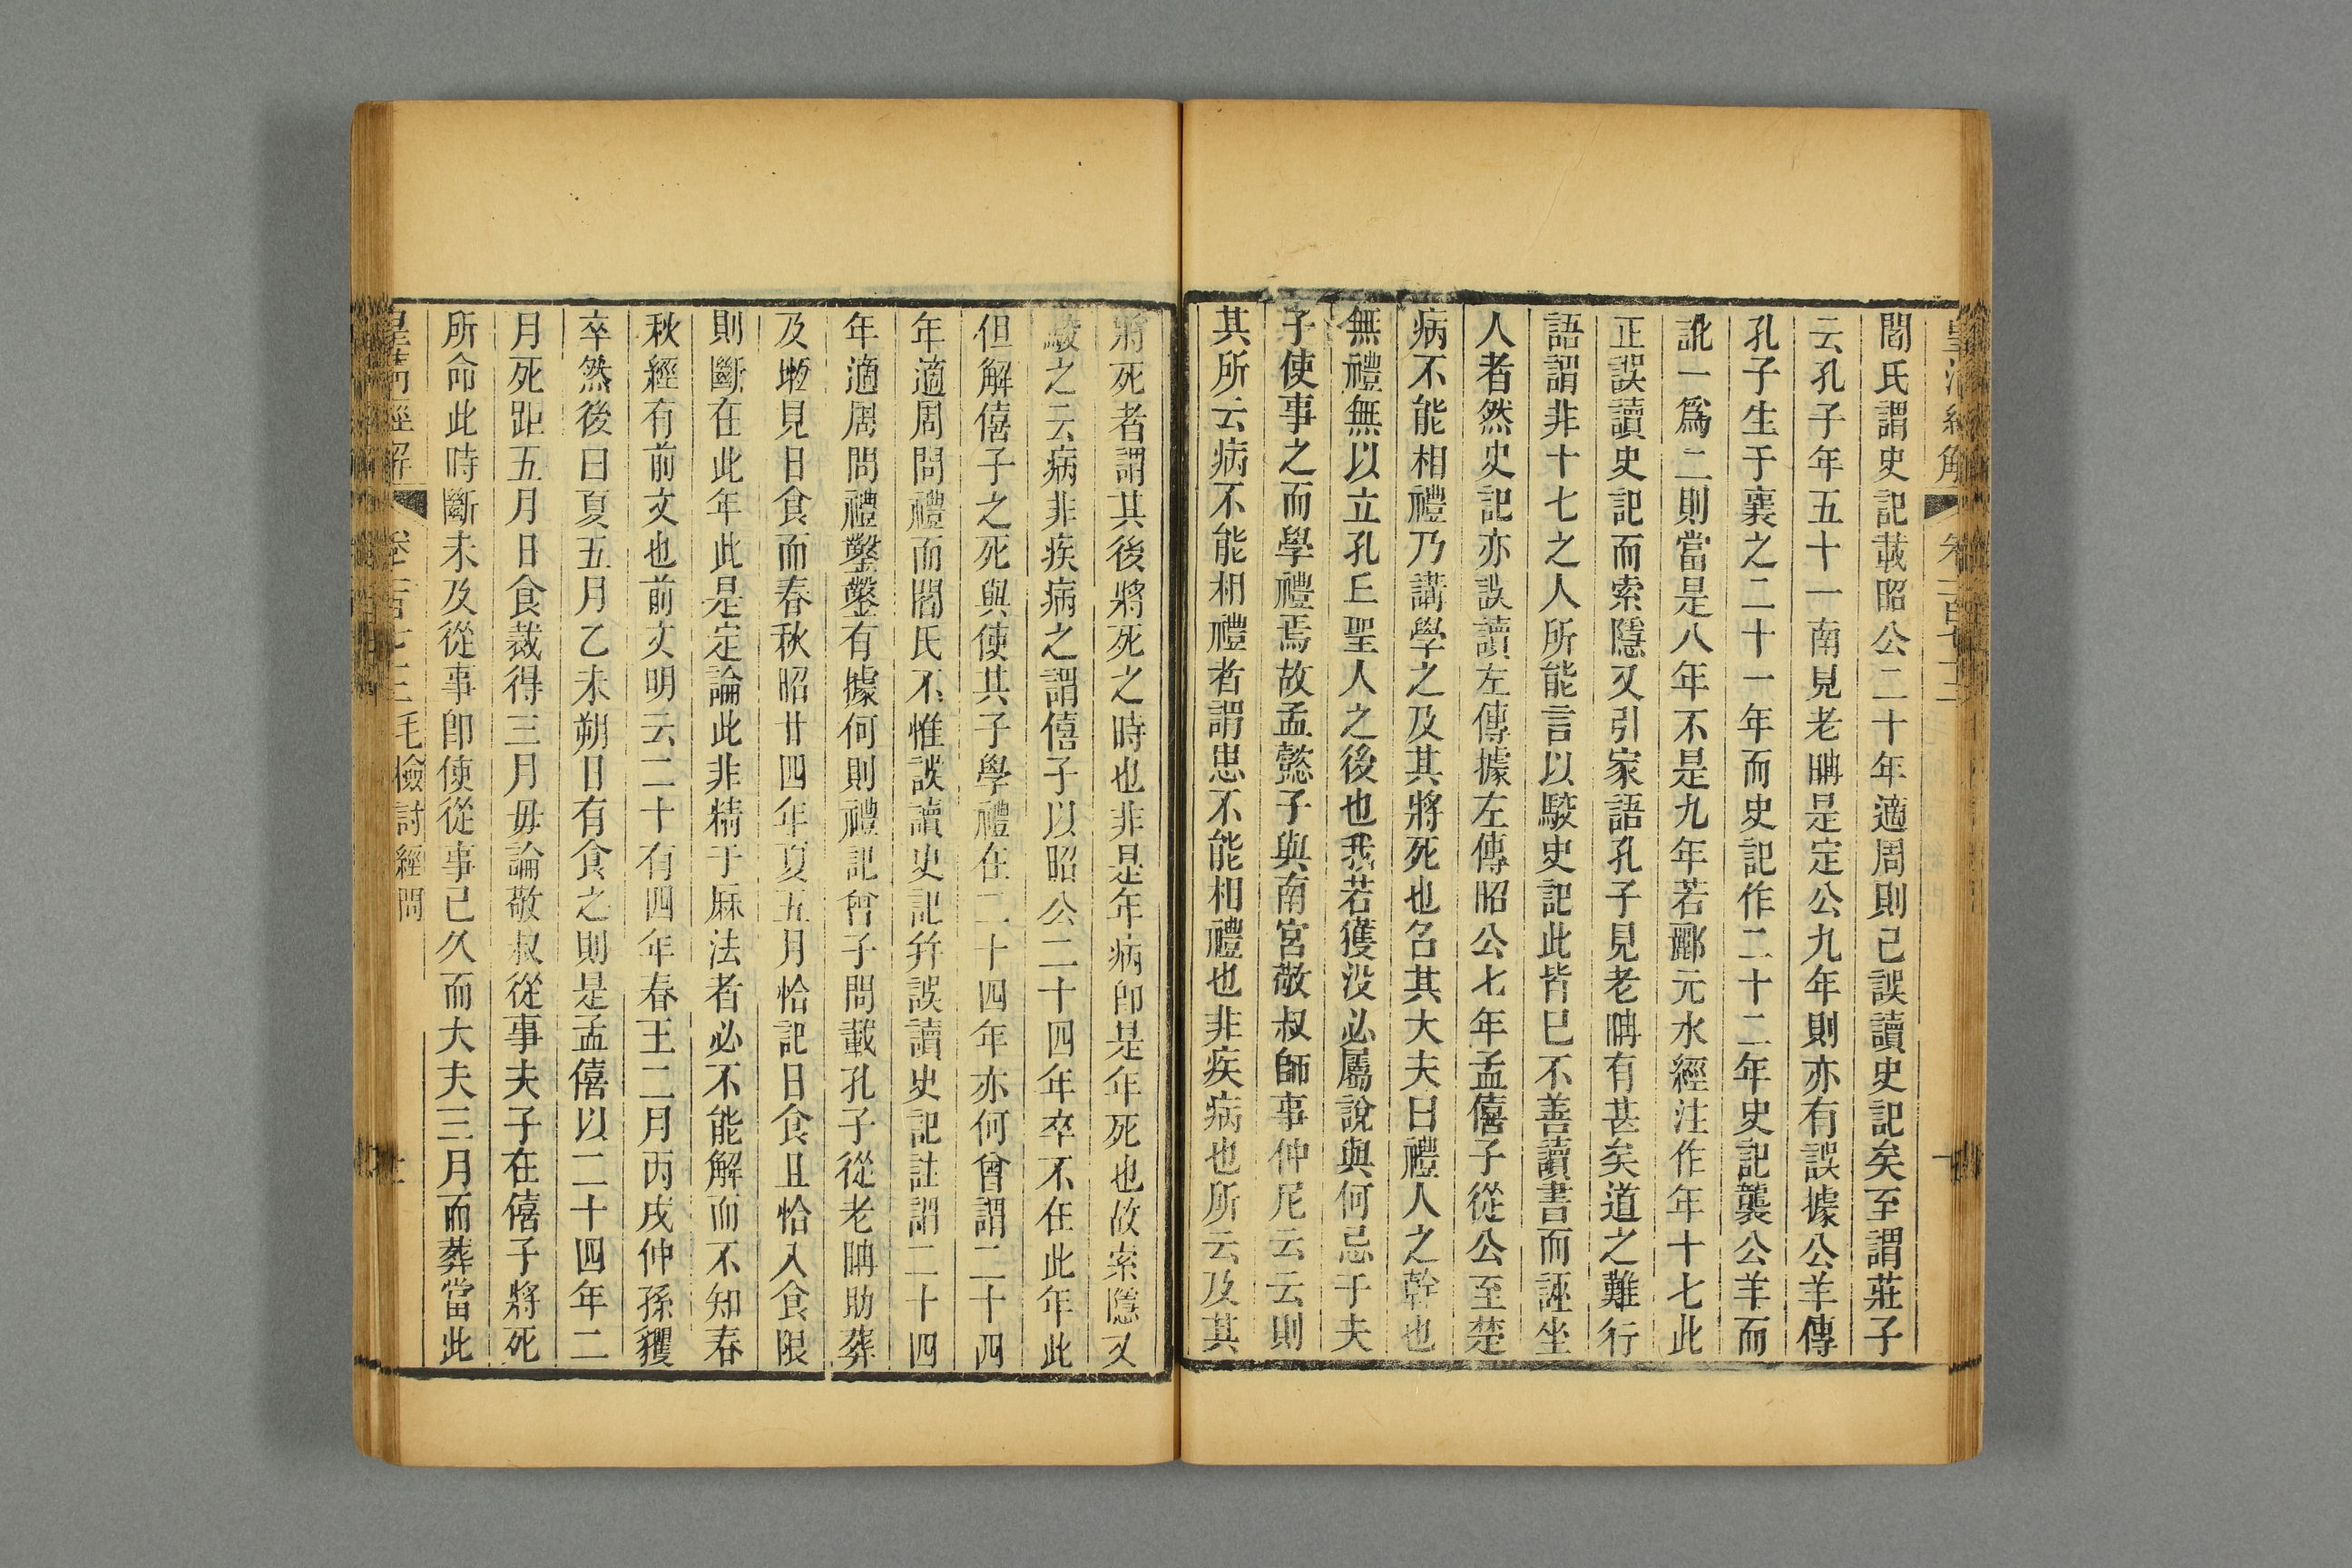 閻氏謂史記載昭公二十年適周則已誤讀史記矣至謂莊子
云孔子年五十一南見老聃是定公九年則亦有誤據公羊傳
孔子生于襄之二十一年而史記作二十二年史記襲公羊而
訛一爲二則當是八年不是九年若酈元水經注作年十七此
正誤讀史記而索隱又引家語孔子見老聃有甚矣道之難行
語謂非十七之人所能言以駮史記此皆巳不善讀書而誣坐
人者然史記亦誤讀左傳據左傳昭公七年孟僖子從公至楚
病不能相禮乃講學之及其將死也名其大夫曰禮人之幹也
無禮無以立孔丘聖人之後也我若獲没必屬說與何忌于夫
子使事之而學禮焉故孟懿子與南宮敬叔師事仲尼云云則
其所云病不能相禮者謂患不能相禮也非疾病也所云及其
將死者謂其後將死之時也非是年病卽是年死也故索隱又
駮之云病非疾病之謂僖子以昭公二十四年卒不在此年此
但解僖子之死與使其子學禮在二十四年亦何曾謂二十四
年適周問禮而閻氏不惟誤讀史記幷誤讀史記註謂二十四
年適周問禮鑿鑿有據何則禮記曾子問載孔子從老聃助葬
及堩見日食而春秋昭廿四年夏五月恰記日食且恰入食限
則斷在此年此是定論此非精于厤法者必不能解而不知春
秋經有前文也前文明云二十有四年春王二月丙戌仲孫貜
卒然後曰夏五月乙未朔日有食之則是孟僖以二十四年二
月死距五月日食裁得三月毋論敬叔從事夫子在僖子將死
所命此時斷未及從事卽使從事已久而大夫三月而葬當此
皇清經解 卷一百七十三 毛檢討經問